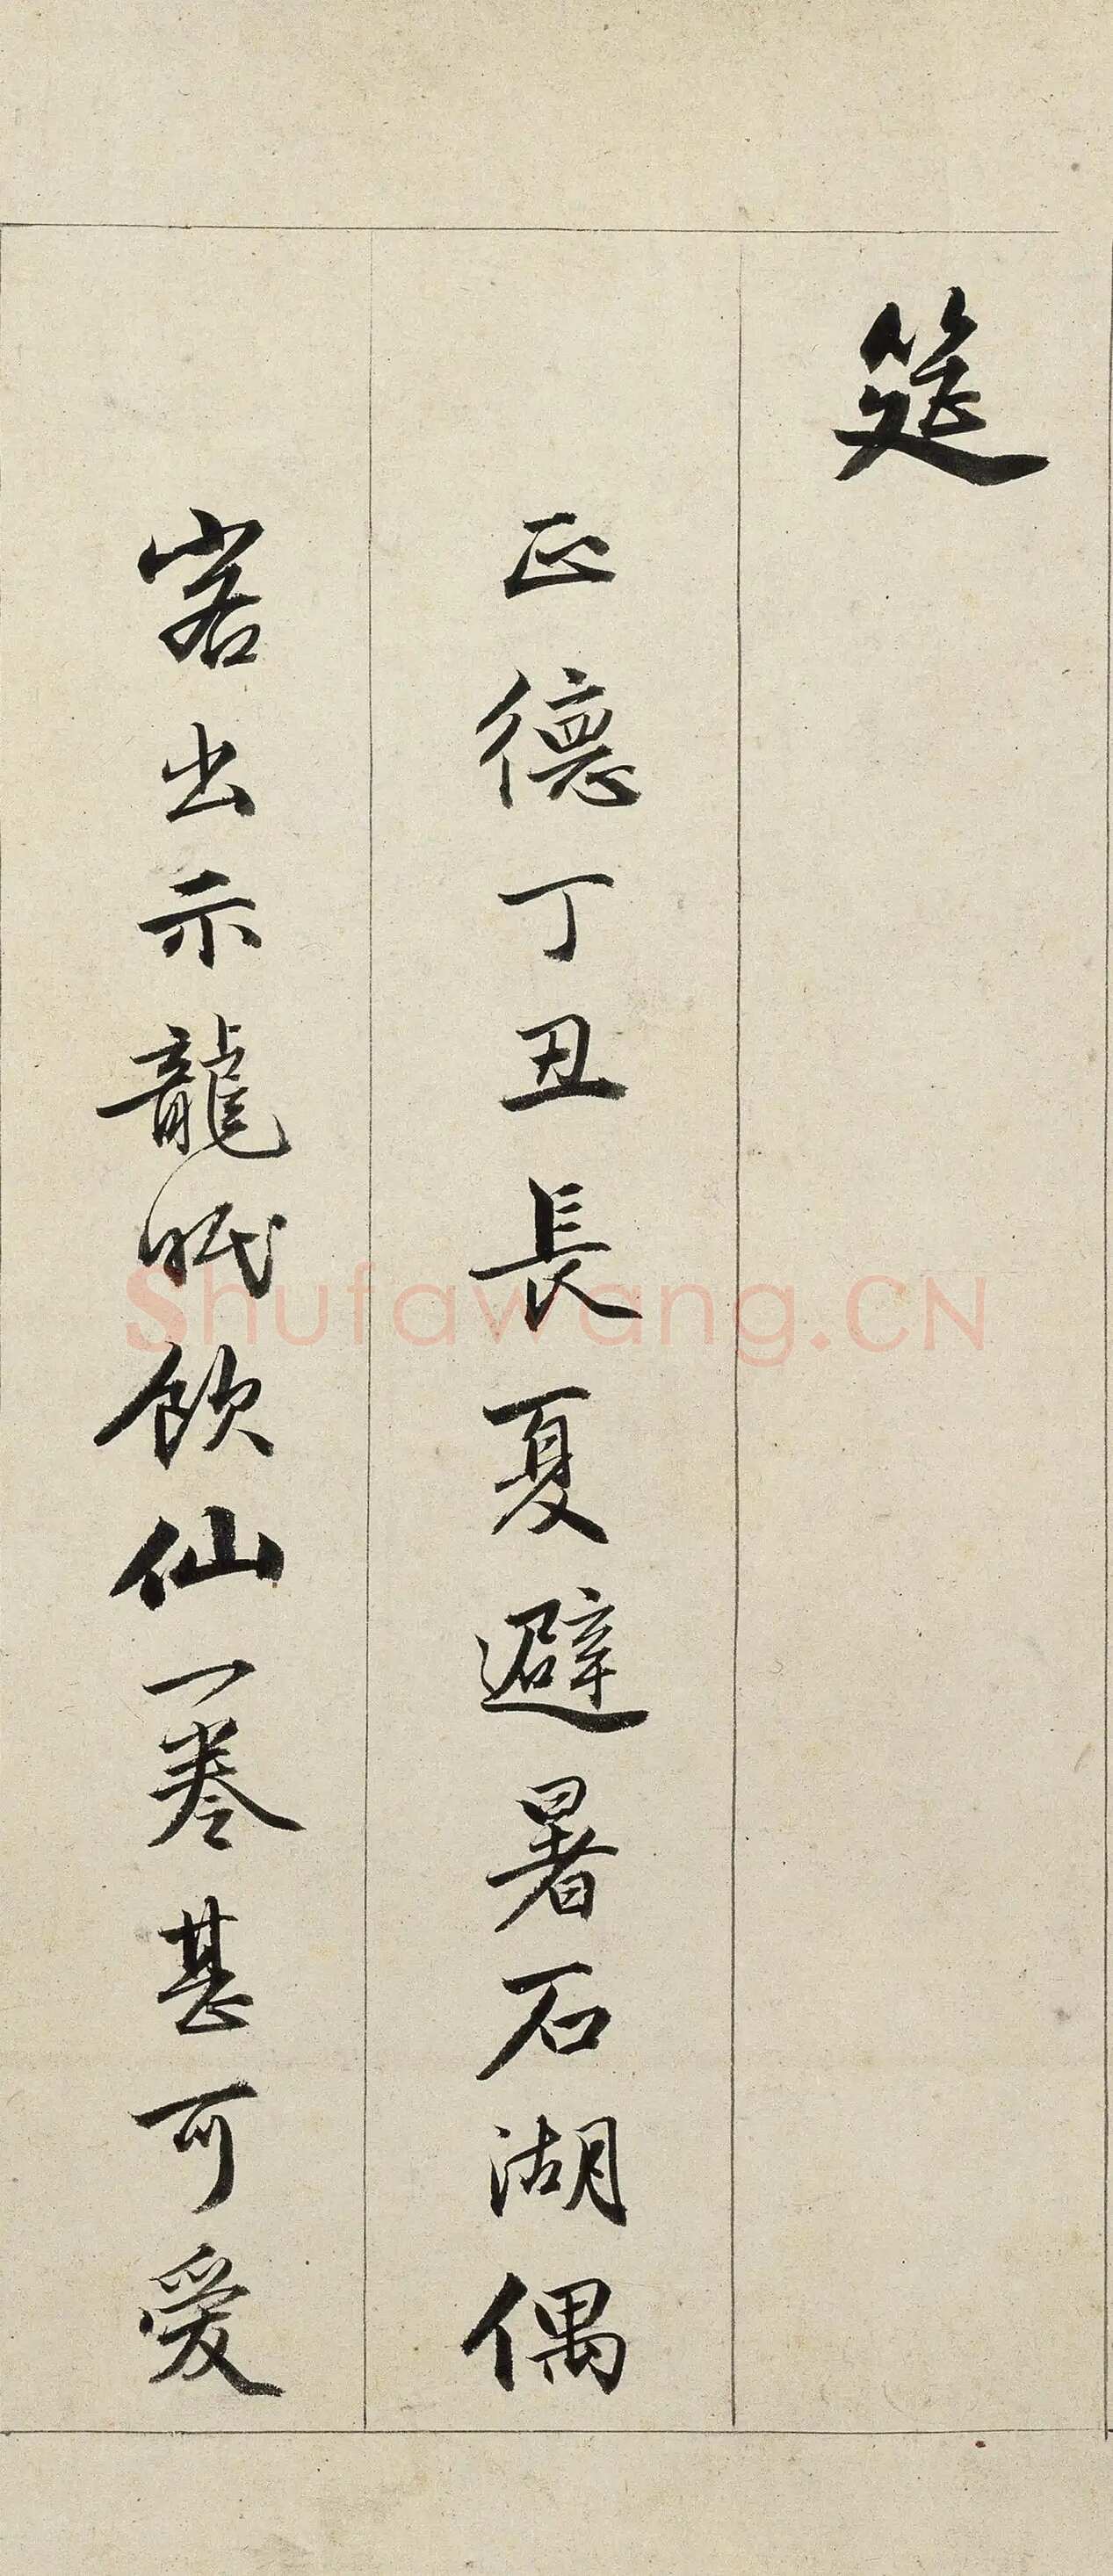 筵
正德丁丑長夏避暑石湖偶
客出示龍眠飲仙一卷甚可愛
Shufawang.CN